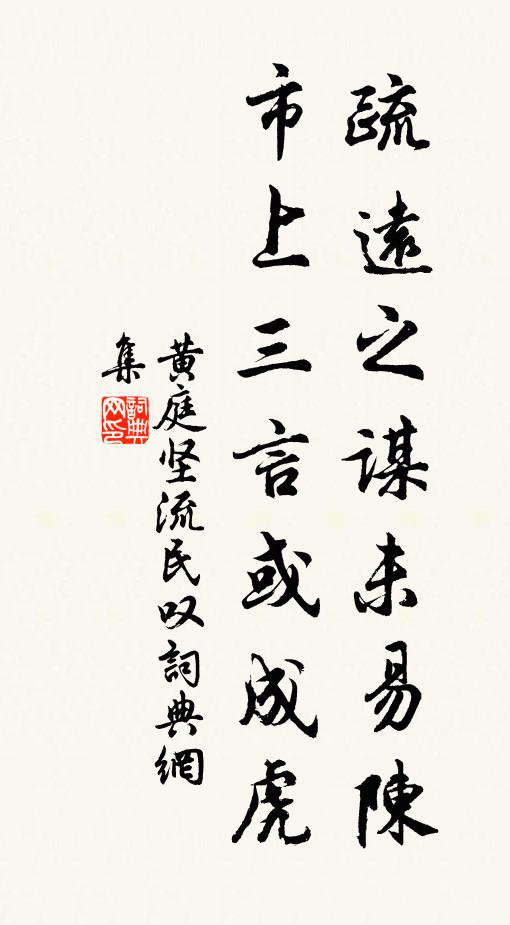 疏遠之謀未易陳
市上三言或成虎
黄庭坚流民叹詞典網
集
詞典网印